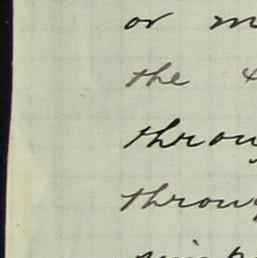 or m
the
throug
throug